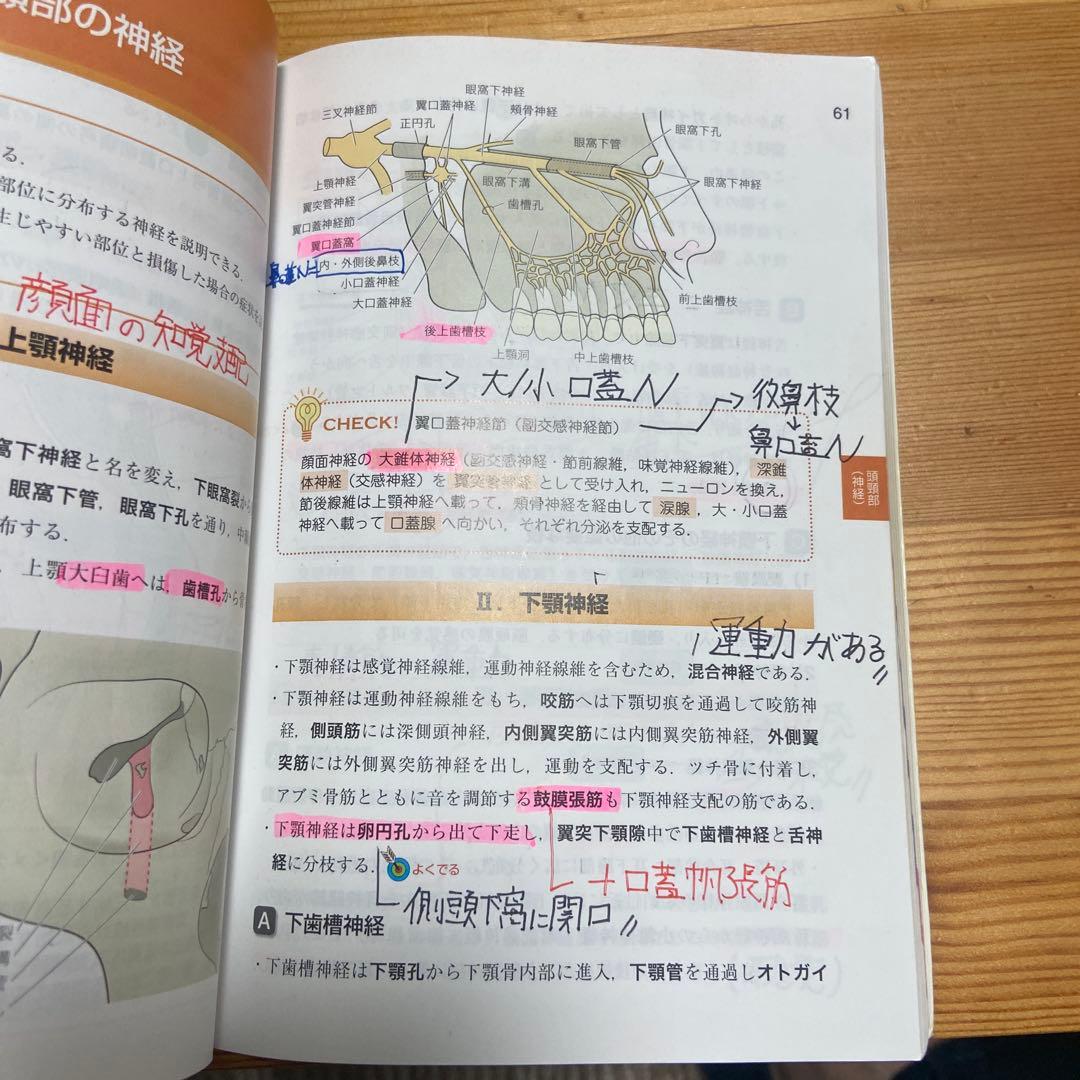 頸部の神経
る.
部位に分布する神経を説明できる.
生じやすい部位と損傷した場合の症状を
顔面の知覚支配
上顎神経
窩下神経と名を変え，下眼窩裂から
眼窩下管，眼窩下孔を通り，中
布する.
上顎大臼歯へは，歯槽孔から骨
61
眼窩下神経
翼口蓋神経
頬骨神経
三叉神経節
正円孔
眼窩下孔
眼窩下管
上顎神経
眼窩下溝
眼窩下神経
翼突管神経
歯槽孔
翼口蓋神経節
翼口蓋窩
鼻口蓋N
内・外側後鼻枝
小口蓋神経
大口蓋神経
前上歯槽枝
後上歯槽枝
上顎洞
中上歯槽枝
大/小口蓋N
後鼻枝
鼻口蓋N
CHECK! 翼口蓋神経節（副交感神経節）
顔面神経の 大錐体神経（副交感神経・節前線維，味覚神経線維），深錐
体神経（交感神経）を 翼突管神経 として受け入れ，ニューロンを換え，
節後線維は上顎神経へ載って，頬骨神経を経由して 涙腺，大・小口蓋
神経へ載って 口蓋腺 へ向かい，それぞれ分泌を支配する.
頭頸部
（神経）
Ⅱ．下顎神経
運動がある
・下顎神経は感覚神経線維，運動神経線維を含むため，混合神経である.
・下顎神経は運動神経線維をもち，咬筋へは下顎切痕を通過して咬筋神
経，側頭筋には深側頭神経，内側翼突筋には内側翼突筋神経，外側翼
突筋には外側翼突筋神経を出し，運動を支配する．ツチ骨に付着し，
アブミ骨筋とともに音を調節する鼓膜張筋も下顎神経支配の筋である.
・下顎神経は卵円孔から出て下走し，翼突下顎隙中で下歯槽神経と舌神
経に分枝する. よくでる
+口蓋帆張筋
側頭下窩に開口
A 下歯槽神経
・下歯槽神経は下顎孔から下顎骨内部に進入，下顎管を通過しオトガイ